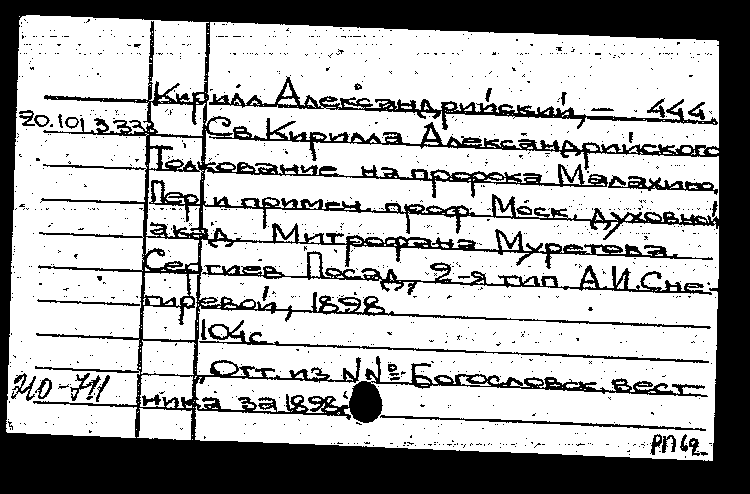 Кирилл Александрийский, — 444.
20.101.3.333 Св. Кирилла Александрийского
Толкование на пророка Малахию.
Пер. и примеч. проф. Моск. духовной
акад. Митрофана Муретова.
Сергиев Посад, 2-я тип. А.И. Сне-
гиревой, 1898.
104с.
Отт. из №№ Богословск. вест-
210-711
ника за 1898г.
РП69